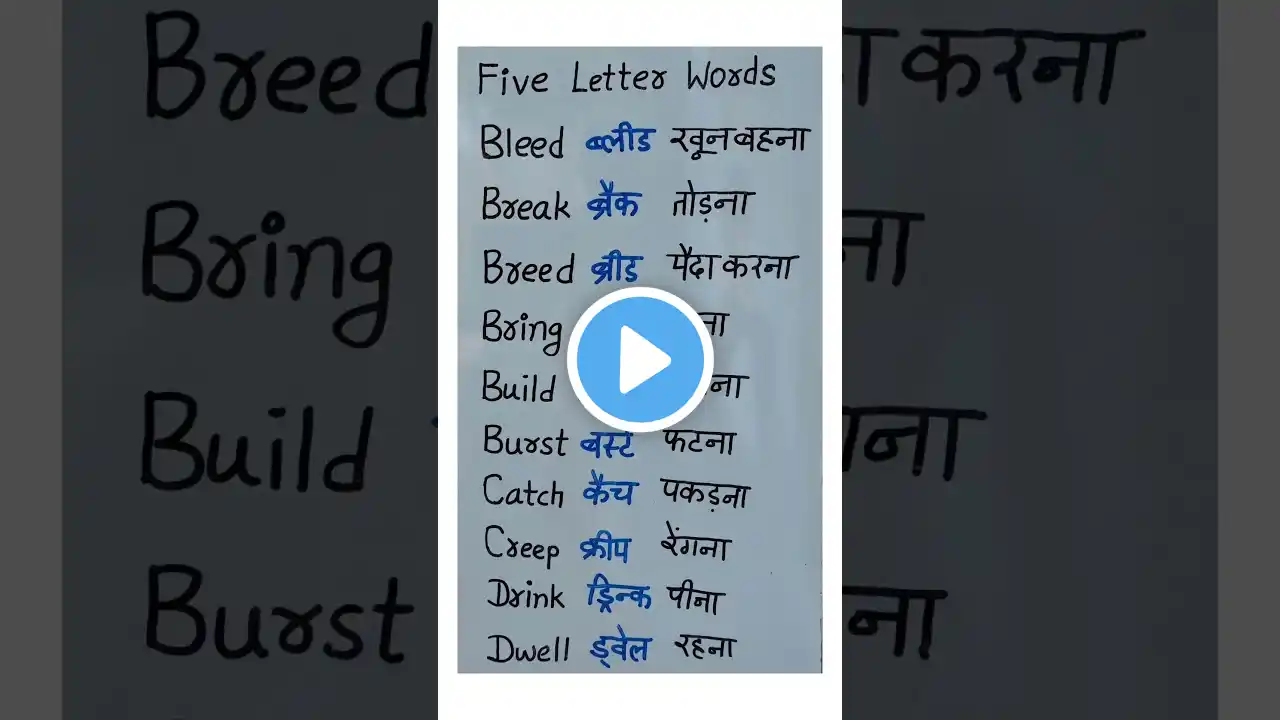 Five Letter Words
Bleed ब्लीड खून बहना
Break ब्रैक तोड़ना
Breed ब्रीड पैदा करना
Bring
Build
Burst बर्स्ट फटना
Catch कैच पकड़ना
Creep क्रीप रेंगना
Drink ड्रिन्क पीना
Dwell ड्वेल रहना